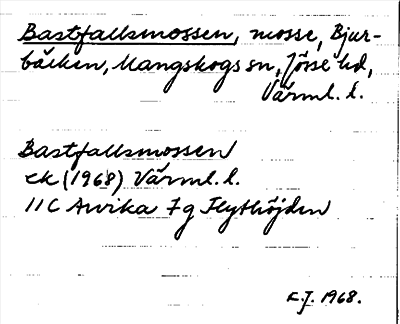 Bastfallsmossen, mosse, Bjur-
bäcken, Mangskogs sn, Jösse hd,
Värml. l.
Bastfallsmossen
ek (1968) Värml. l.
11C Arvika 7g Flythöjden
F.J. 1968.